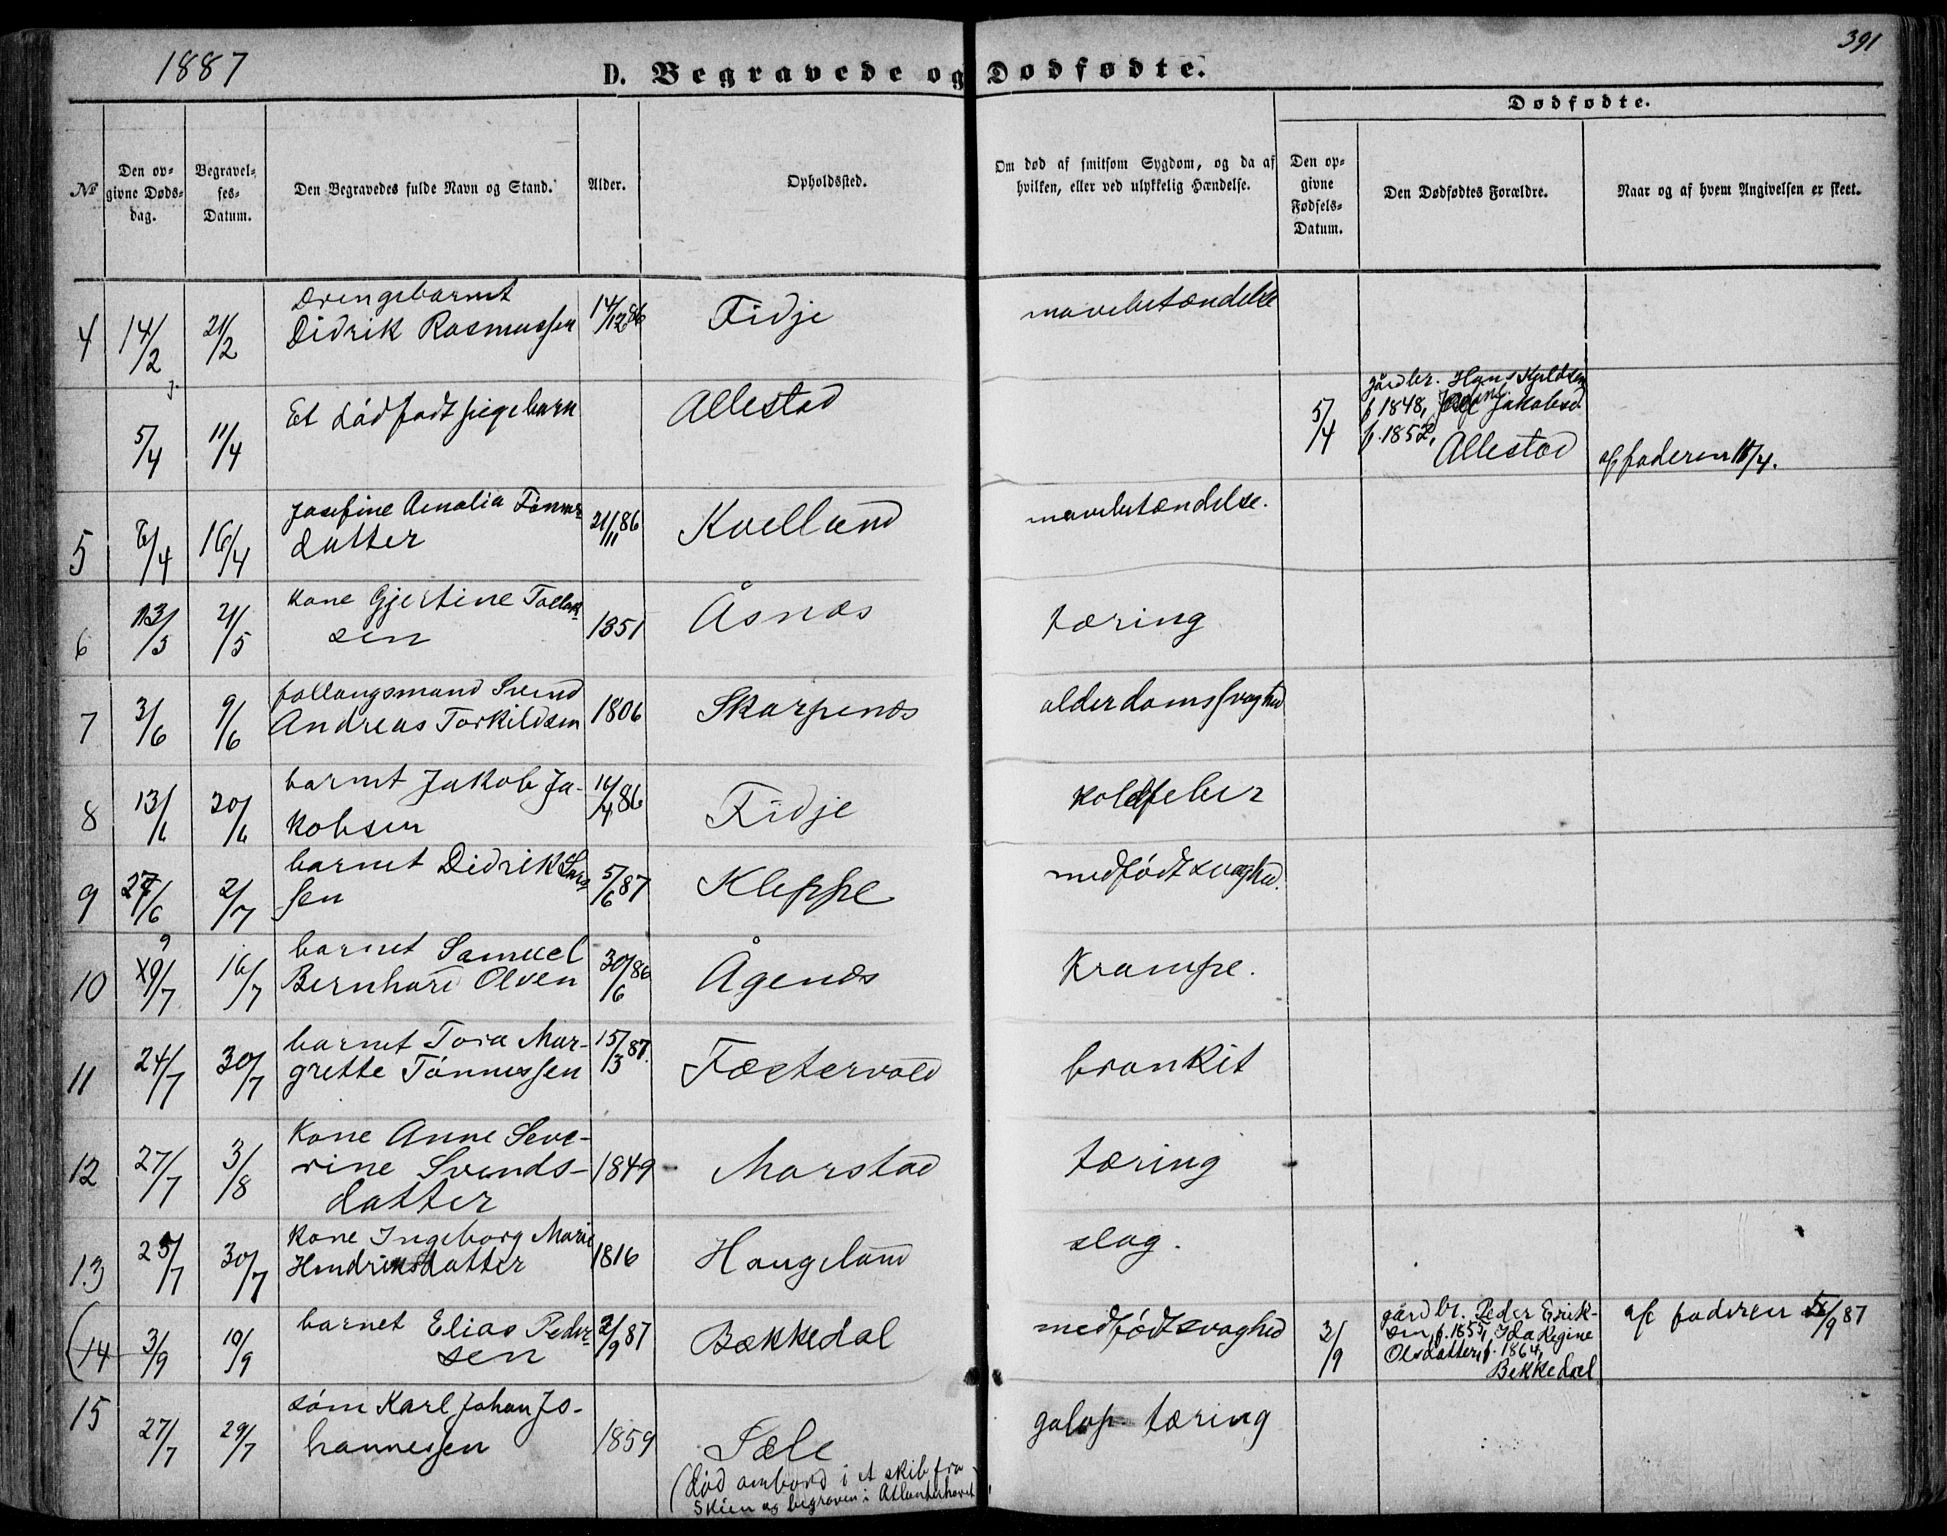 1887
391
D. Begravede og Dødfødte.
Dødfødte.
№
Den opgivne Dødsdag.
Begravelses-Datum.
Den Begravedes fulde Navn og Stand.
Alder.
Opholdssted.
Om død af smitsom Sygdom, og da af hvilken, eller ved ulykkelig Hændelse.
Den opgivne Fødsels-Datum.
Den Dødfødtes Forældre.
Naar og af hvem Angivelsen er skeet.
4 14/2 21/2 Drengebarnet
Didrik Rasmussen 14/12 86 Fidje mavebetændelse
5/4 11/4 Et dødfødt pigebarn Allestad 5/4
gårdbr. Hans Kjeldsen
f 1848, Jakobsd.
f. 1852,
Allestad af faderen 11/4.
5 6/4 16/4 Josefine Amalia Tønnes
datter 21/11 86 Kvelland mavebetændelse.
6 13/5 21/5 kone Gjertine Tollak-
sen 1851 Åsnes tæring
7 3/6 9/6 follaugsmand Svend
Andreas Torkildsen 1806 Skarpenes alderdomssvaghed
8 13/6 20/6 barnet Jakob Ja-
kobsen 16/4 86 Fidje koldfeber
9 27/6 2/7 barnet Didrik Lars
sen 5/6 87 Kleppe medfødt svaghed.
10 9/7 16/7 barnet Samuel
Bernhard Olsen 30/6 86 Ågenes Krampe.
11 24/7 30/7 barnet Tora Mar-
grette Tønnessen 15/3 87. Fæstervold bronkit
12 27/7 3/8 Kone Anne Seve-
rine Svends- 1849 Marstad tæring
datter
13 25/7 30/7 kone Ingeborg Marie
Hendriksdatter 1816 Haugeland slag.
(14 3/9 10/9 barnet Elias Peder-
sen 2/9 87 Bækkedal medfødt svaghed 2/9
gårdbr. Peder Erik-
sen, f. 1855, Ida Regine
Olsdatter, f. 1864,
Bekkedal af faderen 5/9 87
15 27/7 29/7 søm Karl Johan Jo-
hannessen 1859 Sæle galop tæring
(død ombord i et skib fra
Skien og begraven i Atlanterhavet